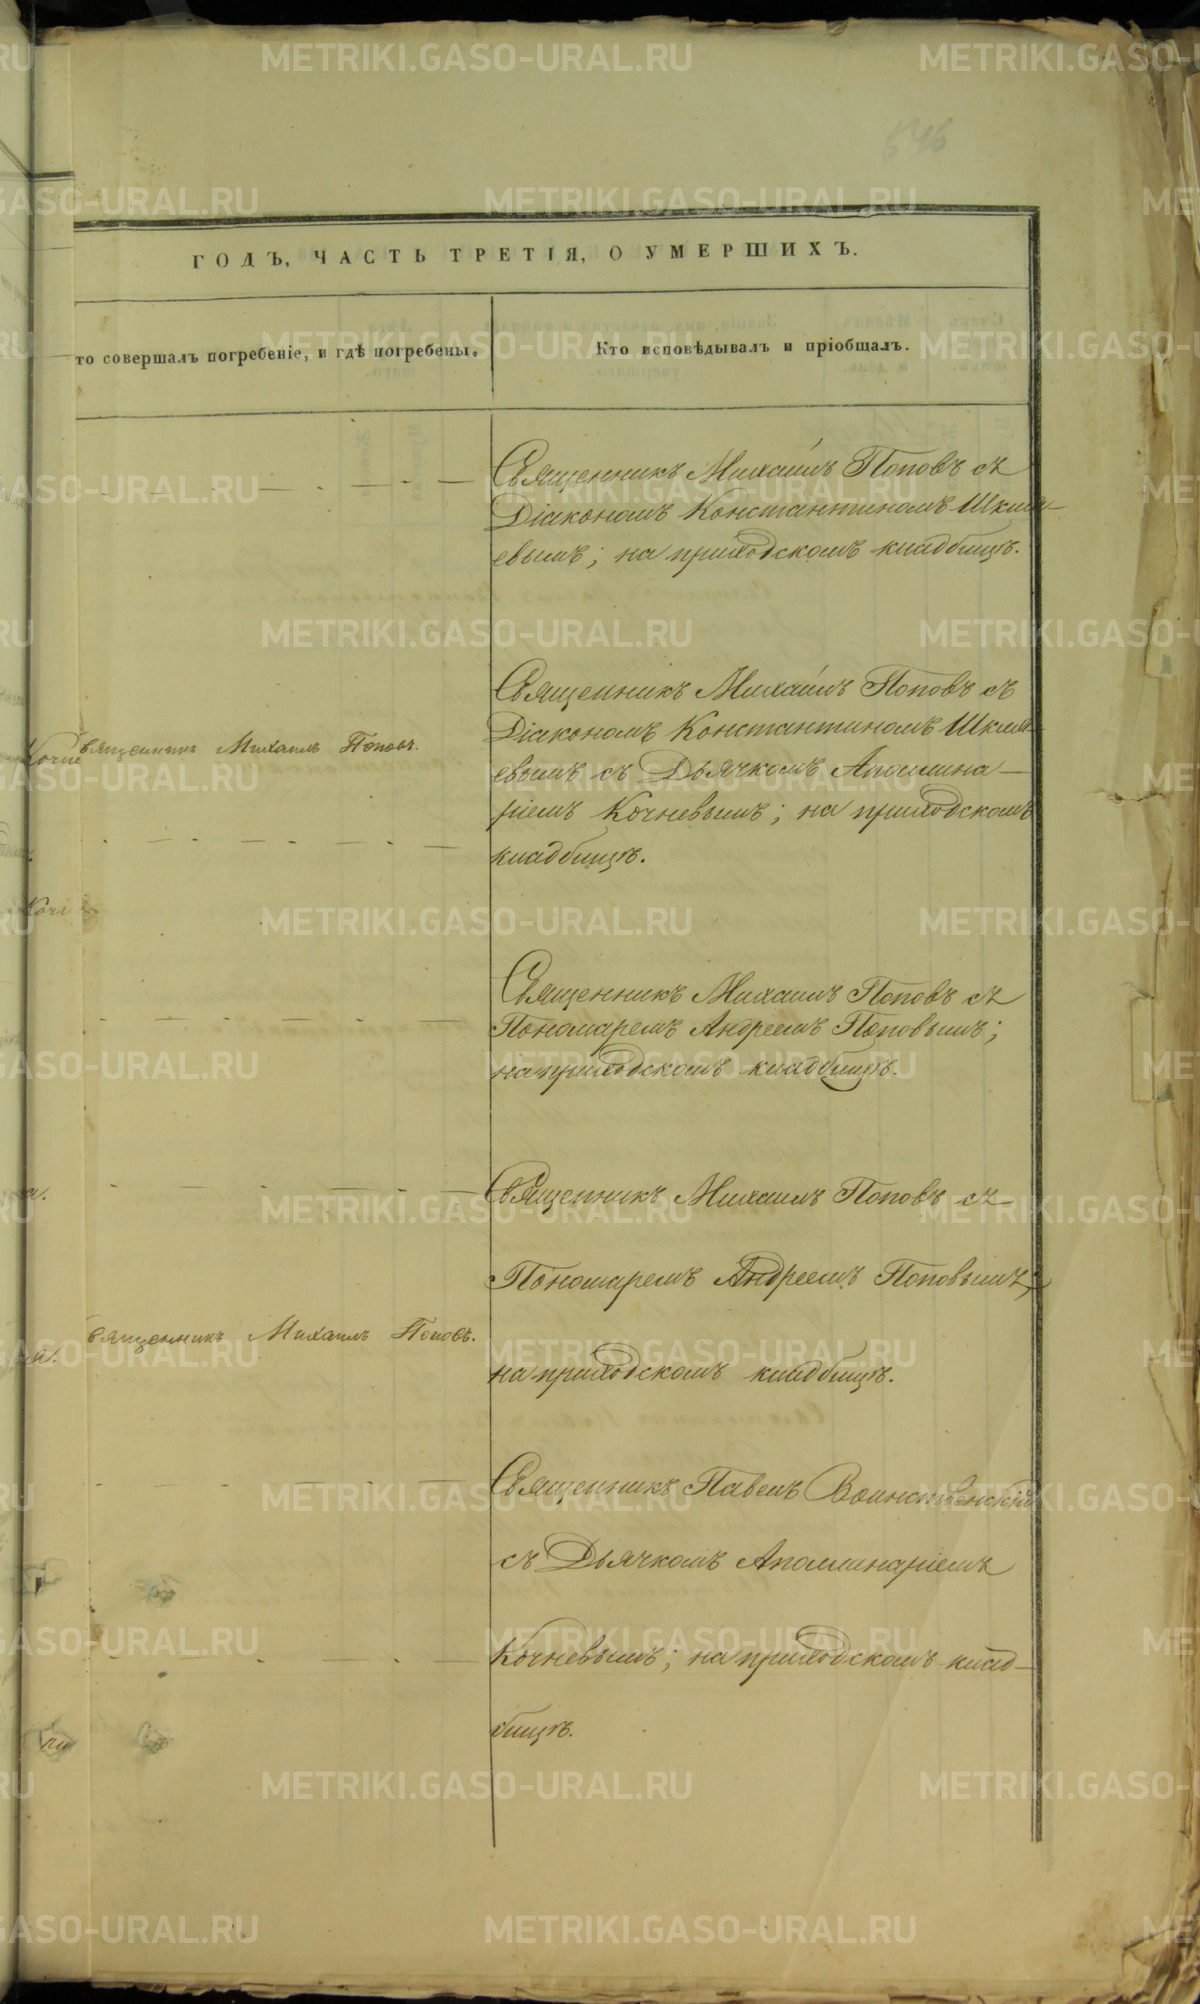 546
ГОДЪ, ЧАСТЬ ТРЕТІЯ, О УМЕРШИХЪ.
то совершалъ погребеніе, и гдѣ погребены.
Кто исповѣдывалъ и пріобщалъ.
Священникъ Михаилъ Поповъ съ
Діакономъ Константиномъ Шкля-
евымъ; на приходскомъ кладбищѣ.
Священникъ Михаилъ Поповъ съ
Діакономъ Константиномъ Шкля-
евымъ съ Дьячкомъ Аполлина-
ріемъ Кочневымъ; на приходскомъ
кладбищѣ.
вященникъ Михаилъ Поповъ.
Священникъ Михаилъ Поповъ съ
Пономаремъ Андреемъ Поповымъ;
на приходскомъ кладбищѣ.
Священникъ Михаилъ Поповъ съ
Пономаремъ Андреемъ Поповымъ;
на приходскомъ кладбищѣ.
вященникъ Михаилъ Поповъ.
Священникъ Павелъ Воинственскій
съ Дьячкомъ Аполлинаріемъ
Кочневымъ; на приходскомъ клад-
бищѣ.
METRIKI.GASO-URAL.RU